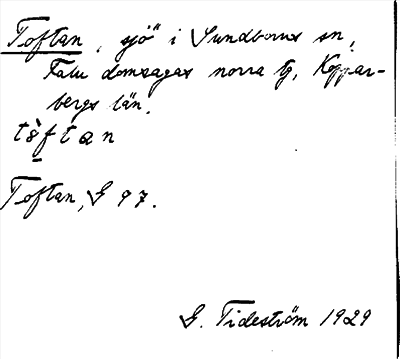 Toftan, sjö i Sundborns sn,
Falu domsagas norra tg, Koppar-
bergs län.
tòftan
Toftan, G 97.
G. Tideström 1929